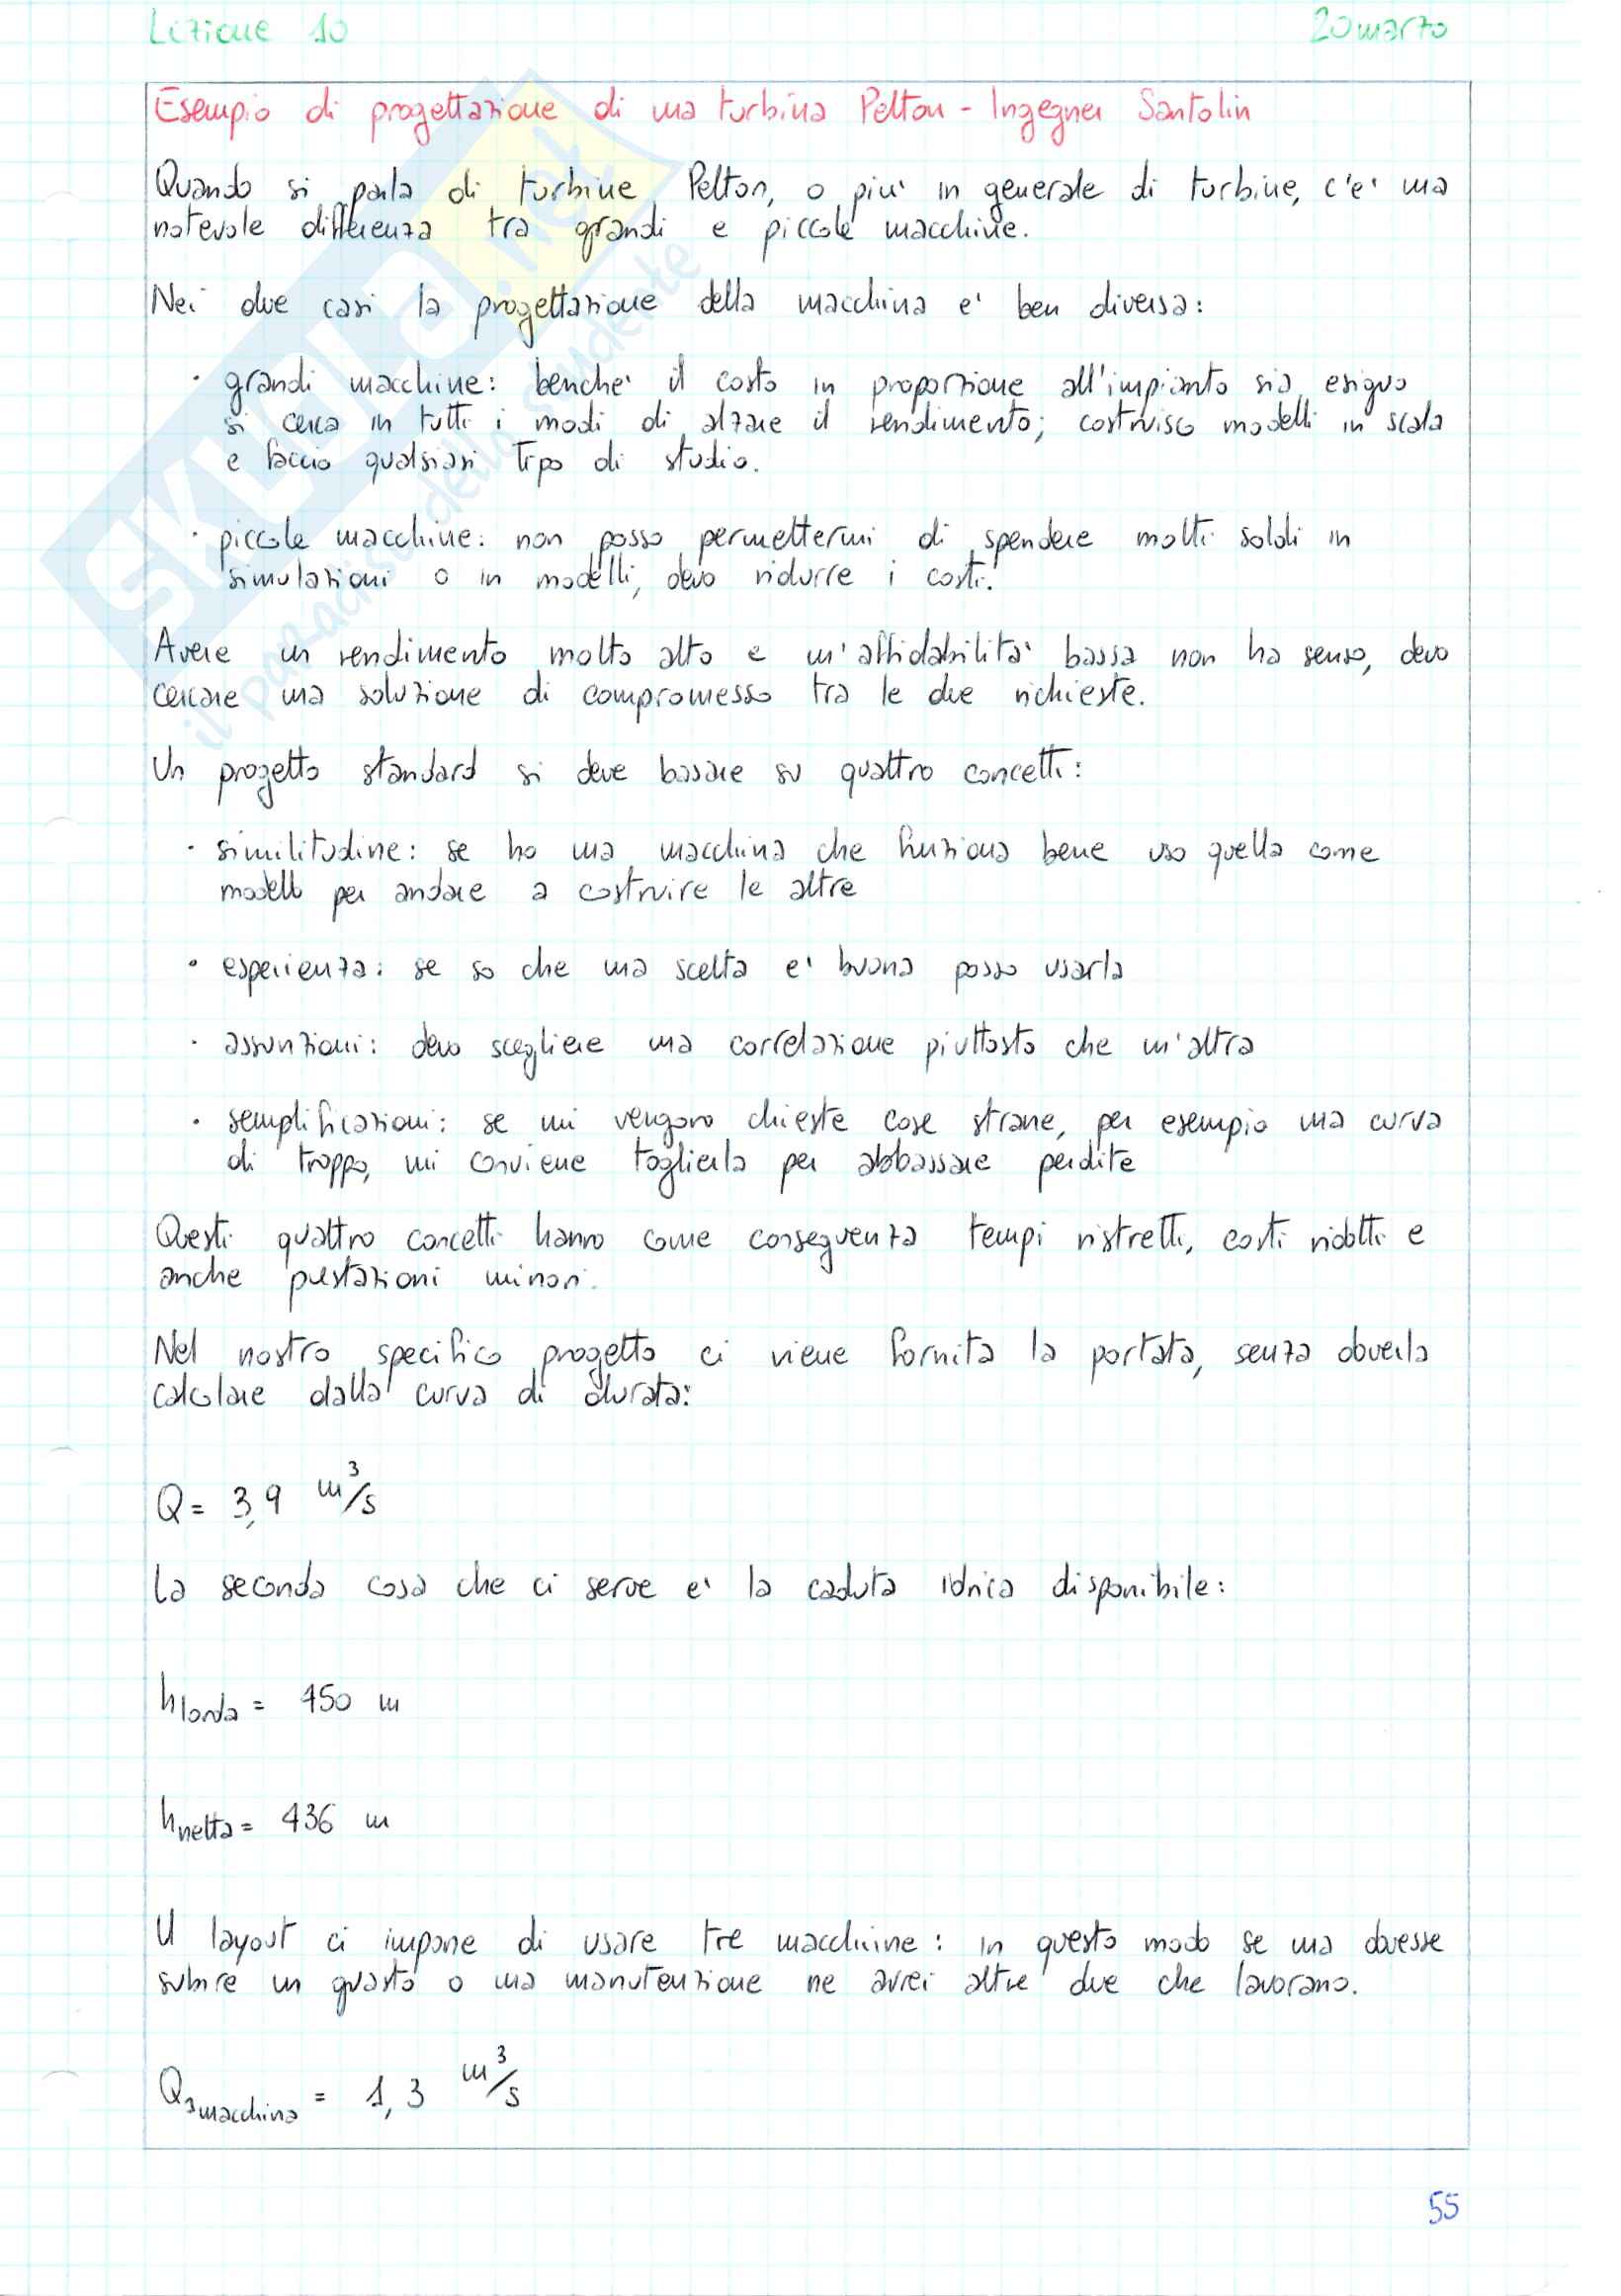 Lezione 10
20 marzo
Esempio di progettazione di una turbina Pelton - Ingegner Santolin
Quando si parla di turbine Pelton, o piu' in generale di turbine, c'e' una
notevole differenza tra grandi e piccole macchine.
Nei due casi la progettazione della macchina e' ben diversa:
· grandi macchine: benche' il costo in proporzione all'impianto sia esiguo
si cerca in tutti i modi di alzare il rendimento; costruisco modelli in scala
e faccio qualsiasi tipo di studio.
· piccole macchine: non posso permettermi di spendere molti soldi in
simulazioni o in modelli, devo ridurre i costi.
Avere un rendimento molto alto e un'affidabilita' bassa non ha senso, devo
cercare una soluzione di compromesso tra le due richieste.
Un progetto standard si deve basare su quattro concetti:
· similitudine: se ho una macchina che funziona bene uso quella come
modello per andare a costruire le altre
· esperienza: se so che una scelta e' buona posso usarla
· assunzioni: devo scegliere una correlazione piuttosto che un'altra
· semplificazioni: se mi vengono chieste cose strane, per esempio una curva
di troppo, mi conviene toglierla per abbassare perdite
Questi quattro concetti hanno come conseguenza tempi ristretti, costi ridotti e
anche prestazioni minori.
Nel nostro specifico progetto ci viene fornita la portata, senza doverla
calcolare dalla curva di durata:
Q = 3,9 m³/s
La seconda cosa che ci serve e' la caduta idrica disponibile:
h lorda = 450 m
h netta = 436 m
Il layout ci impone di usare tre macchine: in questo modo se una dovesse
subire un guasto o una manutenzione ne avrei altre due che lavorano.
Q 1macchina = 1,3 m³/s
55
SKUOLA.net
il paradiso dello studente